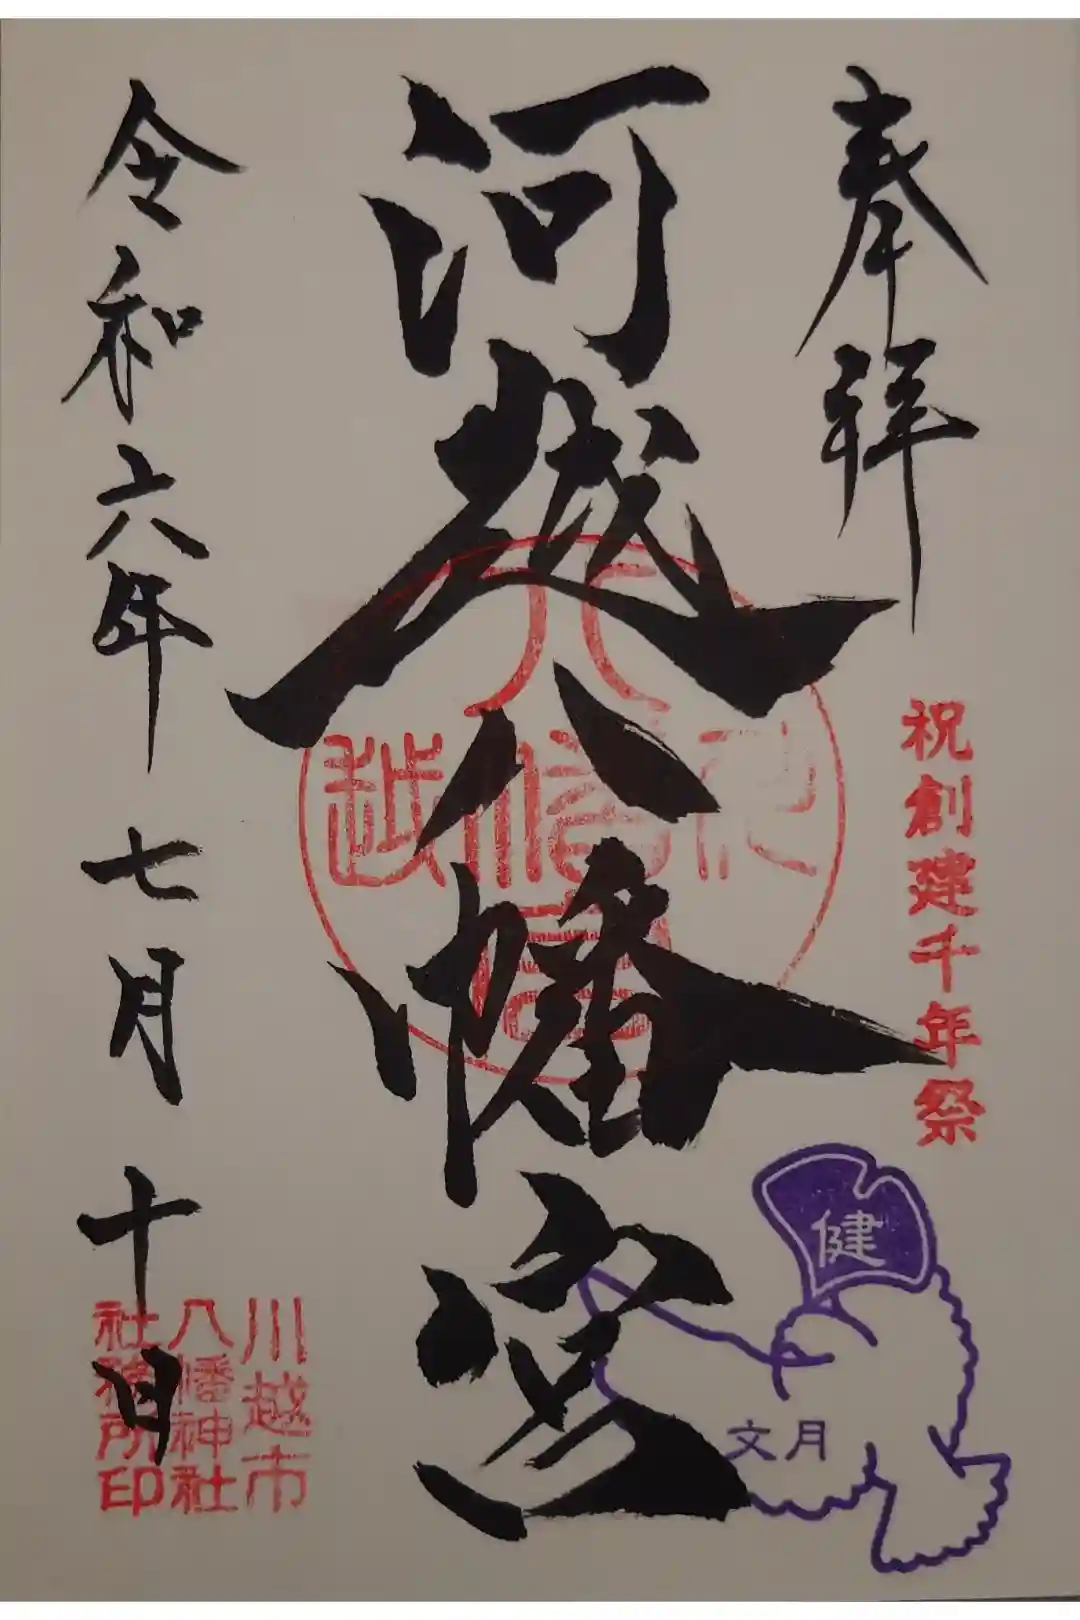 奉拝
祝創建千年祭
河越八幡宮
健
文月
令和六年七月十日
川越市
八幡神社
社務所印